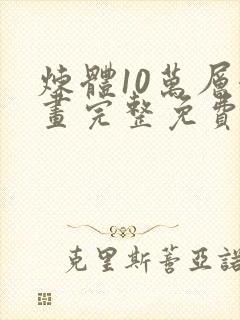 煉體10萬層
畫完整免費
克里斯蒂亞諾